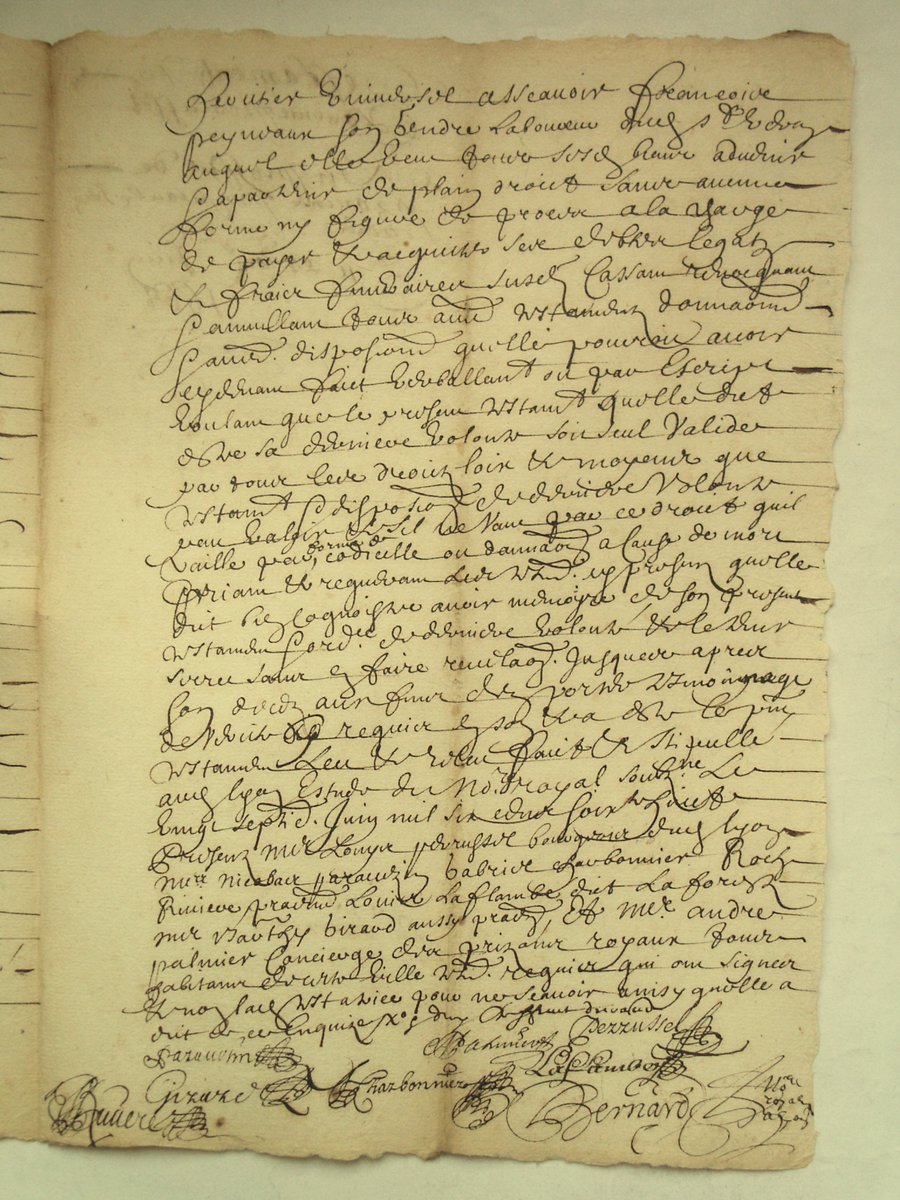 heritier universel asseavoir Francoise
peyneaux son gendre laboureur dud
auquel elle veut tous sesd biens advenir
apartenir de plain droict sans aucune
forme ny figure de proces a la charge
de payer & acquitter ses debtes legatz
& fraiz funeraires susd Cassant revocquant
& annullant tous aues testamentz donnaons
& aues. disposions quelle pourroit avoir
cydevant faict verballant ou par Escript
voulant que le present testamt quelle dict
estre sa derniere volonte soit seul Valide
par tous les droictz loix & moyens que
testamt & disposion de derniere Volonte
peu valoir & sil ne vaut par ce droict quil
vaille par forme de codicille ou donnaon a cause de mort
priant & requerant les tesm. cy presens quelle
dict bie cognoistre avoir memoyre de son present
testament & ord. de derniere volonte & le tenir
secret sans en faire revelaon. Jusques apres
son deces aux fins den porter tesmoignage
de verite requis en soy & a este le pnt
testament Leu & releu faict & stipulle
aud lyon Estude du Nore royal soubzne Le
vingt septie. Juin mil six centz soixte huict
presentz Mre Louys perrussel bourgeois dud lyon
mre nicolas parauzin gabriel charbonnier Roch
Riviere pratin Louis Laflambe dit La forest
mre barthy giraud aussy pratn, Et Mre. andre
palmier Concierge des prizons royaux tous
habitans de cette ville tesm. requis qui ont signes
& non lad testatrice pour ne scavoir ainsy quelle a
dict de ce enquize
Parauzin Palmier Perrussel
Girard Charbonnier LaFlambe
Riviere Bernard Nore royal